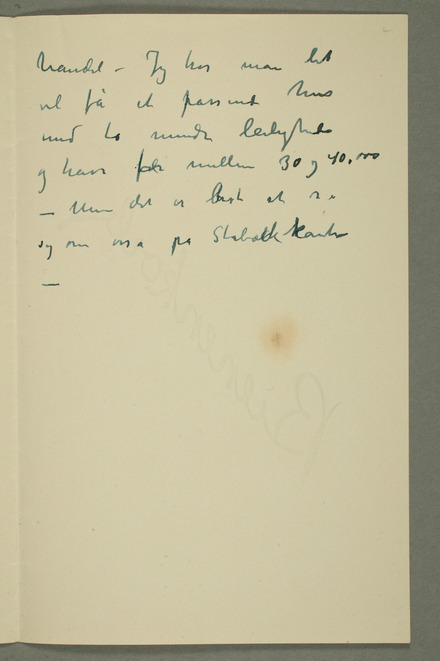 handel – Jeg tror man let
vil få et passende hus
med to mindre leiligheder
og have for mellem 30 og 40,000
– Men det er bedst at se
sig om også på Stabækkkanten
–